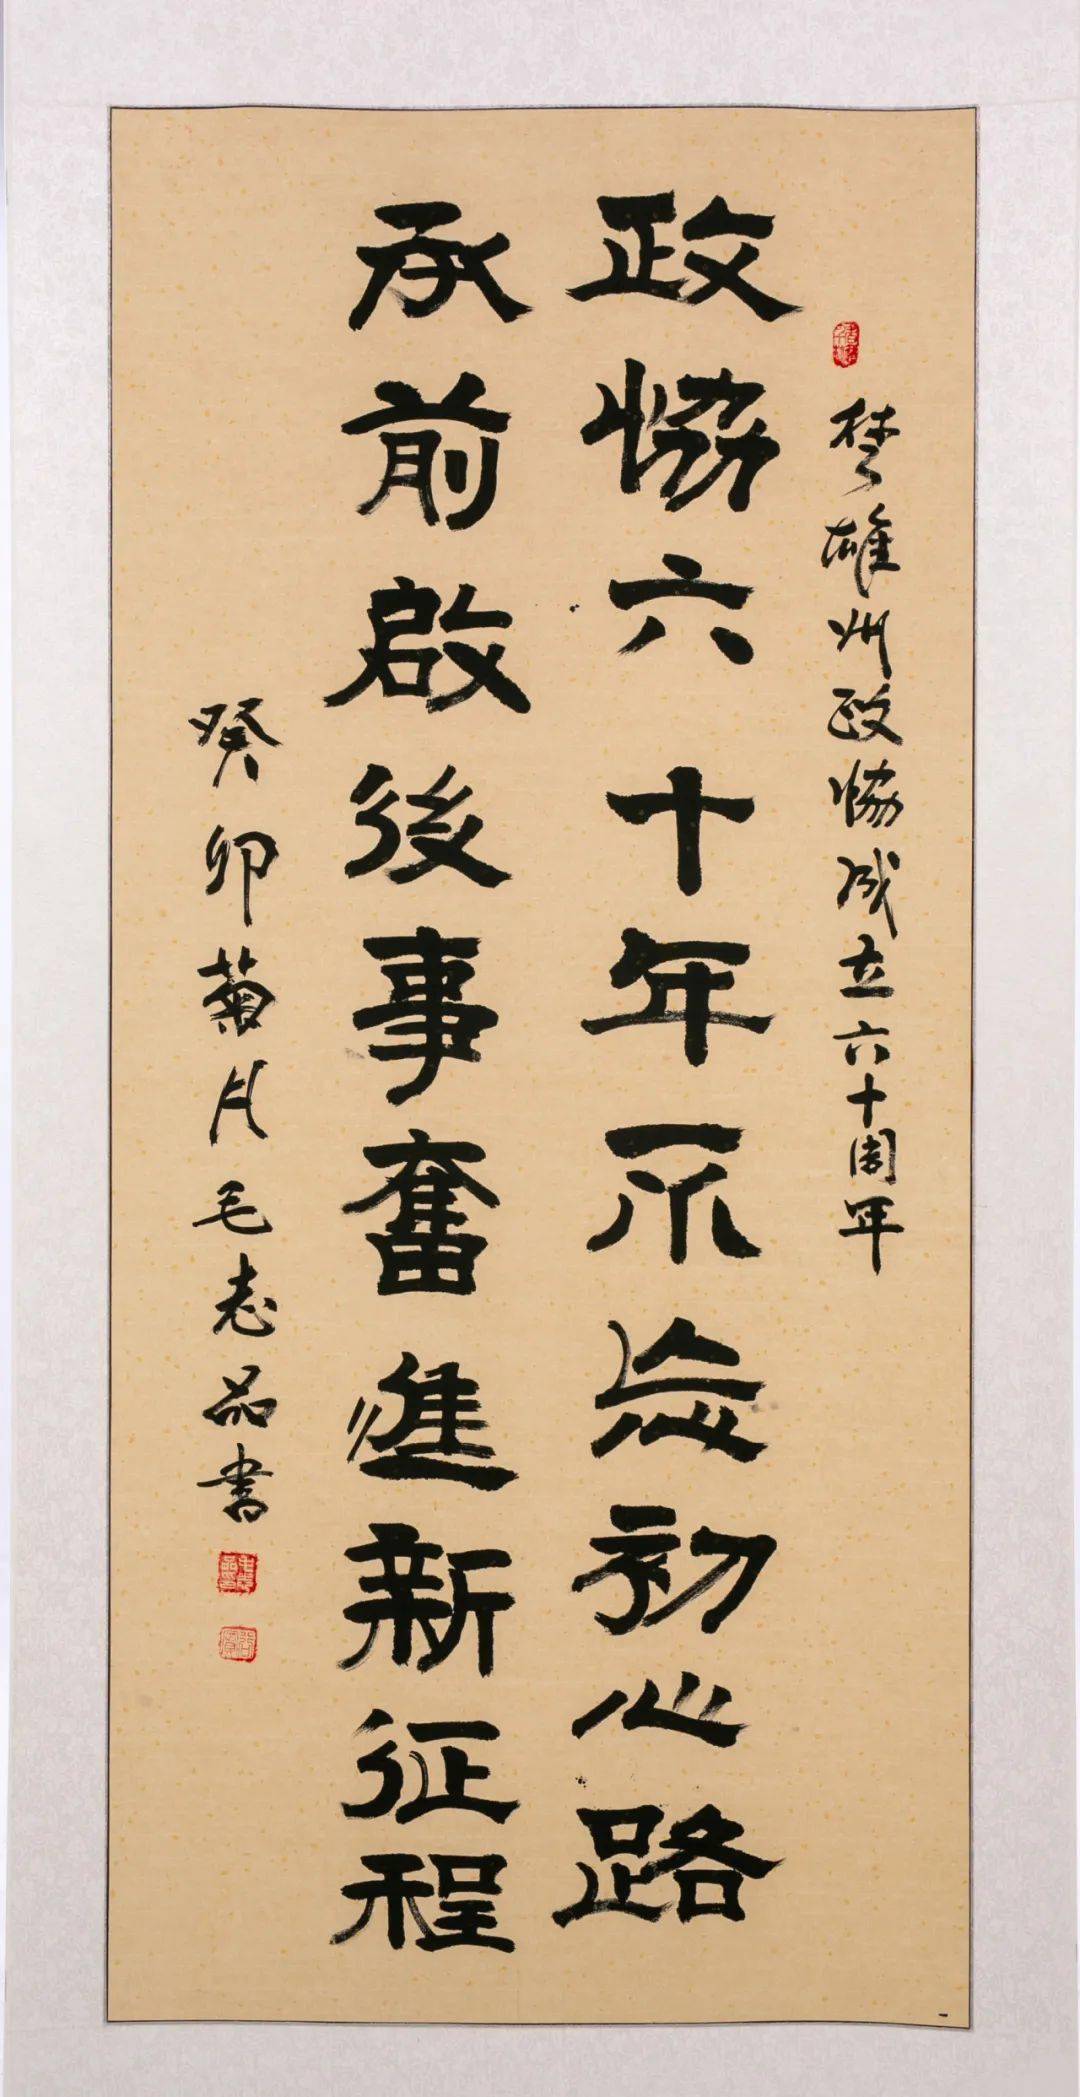 楚雄州政協成立六十周年
政協六十年不忘初心路
承前啟後事奮進新征程
癸卯菊月毛志品書